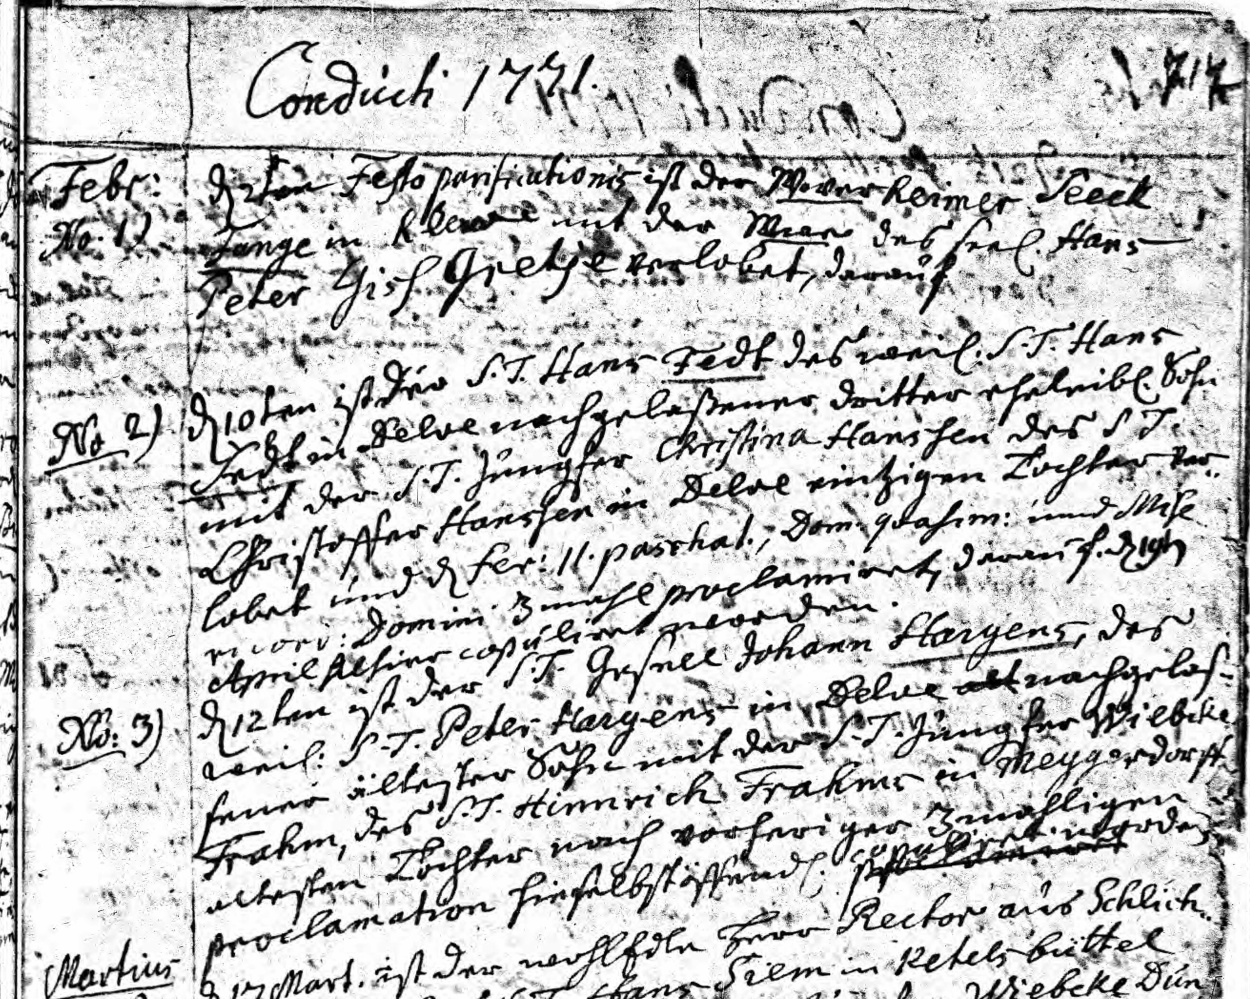 Conducti 1771.
717
Febr:
No. 1)
d 2ten Festo purificationis ist der Wwer Reimer Peeck
Tange in Kleve mit der Wwe des seel. Hans
Peter Gisch Gretje verlobet, darauf
No 2)
d 10ten ist der S.T. Hans Fedt des weil. S.T. Hans
Fedt in Delve nachgelaßener dritter eheleibl. Sohn
mit der S.T. Jungfer Christina Hanssen des S.T.
Christoffer Hanssen in Delve eintzigen Tochter ver-
lobet und d Fer: II. paschat., Dom. quasim: und Mise
ricord: Domini 3 mahl proclamiret, darauf d 19ten
April Alhier copuliret worden.
No: 3)
d 12ten ist der S.T. Gesell Johann Hargens, des
weil: S.T. Peter Hargens in Delve nachgelas-
sener ältester Sohn mit der S.T. Jungfer Wiebcke
Frahm, des S.T. Hinnrich Frahms in Meggerdorff
altesten Tochter nach vorheriger 3 mahligen
proclamation hieselbst öffendl. copuliret worden
Martius
d 17 Mart. ist der wohlEdle Herr Rector aus Schlich-
Hans Siem in Ketelsbüttel
Wiebcke Dün